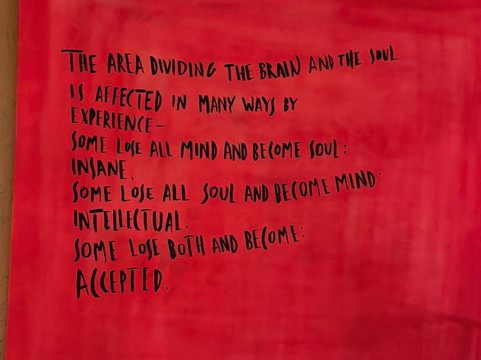 THE AREA DIVIDING THE BRAIN AND THE SOUL
IS AFFECTED IN MANY WAYS BY
EXPERIENCE-
SOME LOSE ALL MIND AND BECOME SOUL:
INSANE.
SOME LOSE ALL SOUL AND BECOME MIND:
INTELLECTUAL.
SOME LOSE BOTH AND BECOME:
ACCEPTED.